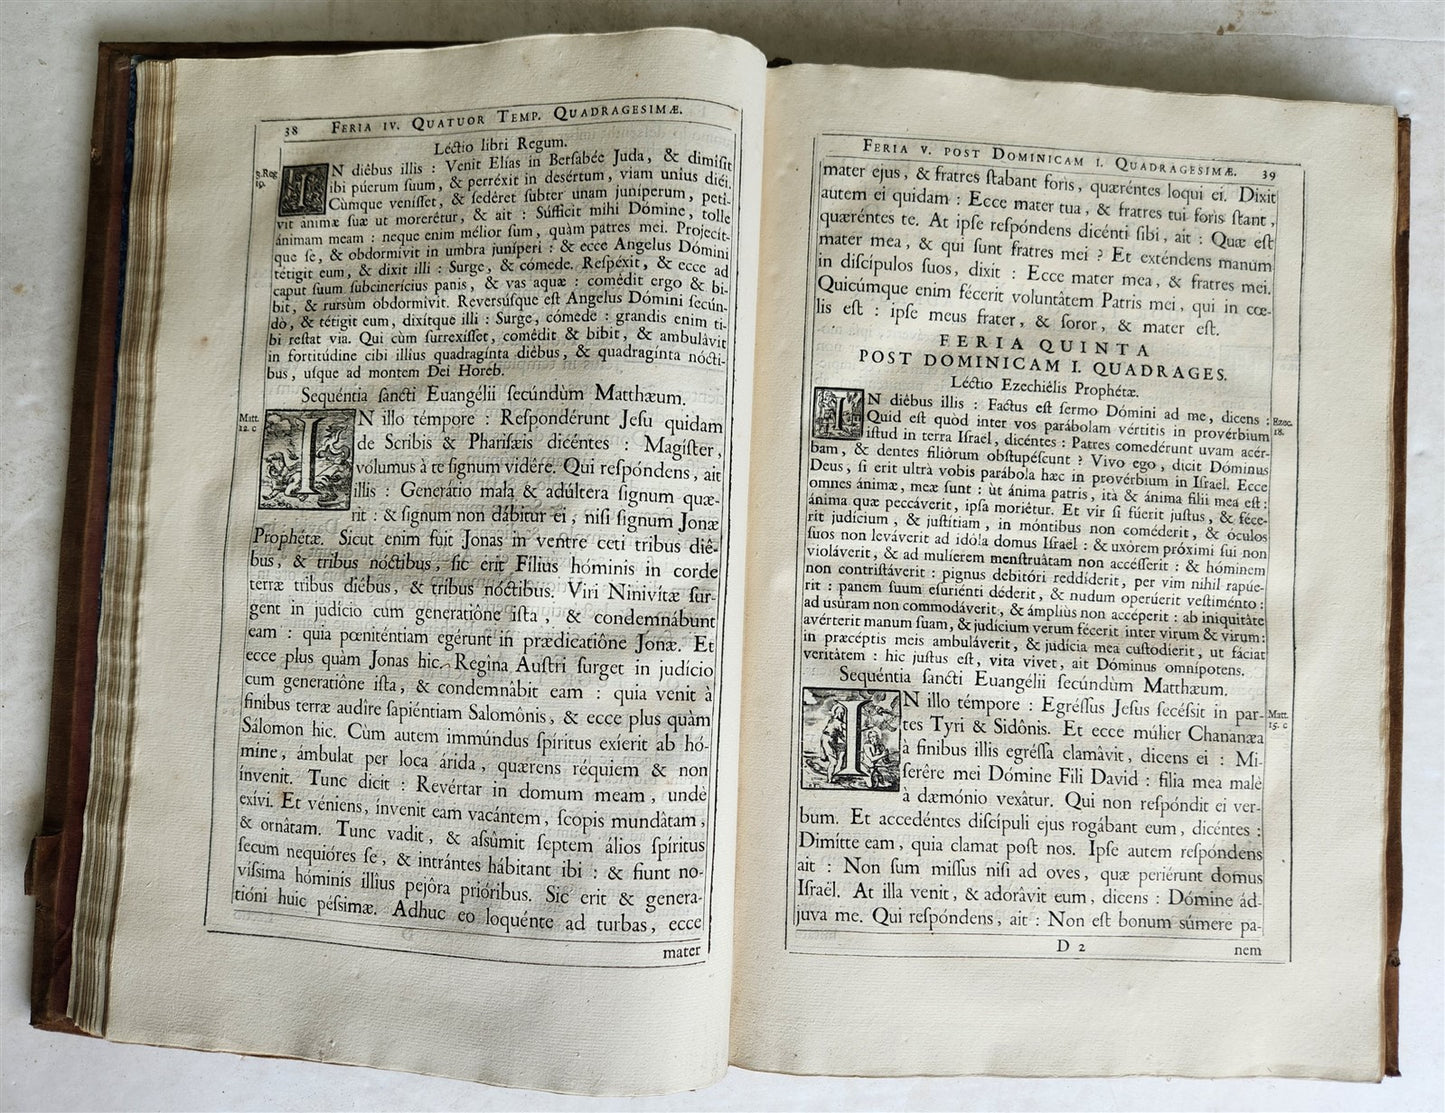 38 FERIA IV. QUATUOR TEMP. QUADRAGESIMÆ.
Léctio libri Regum.
3. Reg.
19.
IN diêbus illis : Venit Elías in Bersabée Juda, & dimísit
ibi púerum ſuum, & perréxit in desértum, viam unius diéi.
Cùmque veníſſet, & ſedéret ſubter unam juníperum, peti-
vit ánimæ ſuæ ut morerétur, & ait : Súfficit mihi Dómine, tolle
ánimam meam : neque enim mélior ſum, quàm patres mei. Projecít-
que ſe, & obdormívit in umbra juníperi : & ecce Angelus Dómini
tétigit eum, & dixit illi : Surge, & cómede. Reſpéxit, & ecce ad
caput ſuum ſubcinerícius panis, & vas aquæ : comédit ergo & bi-
bit, & rurſùm obdormívit. Reversúſque eſt Angelus Dómini ſecún-
dò, & tétigit eum, dixítque illi : Surge, cómede : grandis enim ti-
bi reſtat via. Qui cùm ſurrexíſſet, comédit & bibit, & ambulávit
in fortitúdine cibi illíus quadragínta diêbus, & quadragínta nócti-
bus, uſque ad montem Dei Horeb.
Sequéntia ſancti Euangélii ſecúndùm Matthæum.
Matt.
12. c
IN illo témpore : Reſpondérunt Jeſu quidam
de Scribis & Phariſæis dicéntes : Magíſter,
vólumus à te ſignum vidêre. Qui reſpóndens, ait
illis : Generatio mala & adúltera ſignum quæ-
rit : & ſignum non dábitur ei, niſi ſignum Jonæ
Prophétæ. Sicut enim fuit Jonas in ventre ceti tribus diê-
bus, & tribus nóctibus, ſic erit Filius hóminis in corde
terræ tribus diébus, & tribus nóctibus. Viri Ninivítæ ſur-
gent in judício cum generatiône iſta, & condemnábunt
eam : quia pœniténtiam egérunt in prædicatiône Jonæ. Et
ecce plus quàm Jonas hic. Regína Auſtri ſurget in judício
cum generatiône iſta, & condemnâbit eam : quia venit à
finibus terræ audíre ſapiéntiam Salomônis, & ecce plus quàm
Sálomon hic. Cùm autem immúndus ſpíritus exíerit ab hó-
mine, ámbulat per loca árida, quærens réquiem & non
ínvenit. Tunc dicit : Revértar in domum meam, undè
exívi. Et véniens, ínvenit eam vacántem, ſcopis mundâtam,
& ornâtam. Tunc vadit, & aſsûmit ſeptem álios ſpíritus
ſecum nequióres ſe, & intrántes hábitant ibi : & fiunt no-
víſſima hóminis illíus pejôra prióribus. Sic erit & genera-
tióni huic péſſimæ. Adhuc eo loquénte ad turbas, ecce
mater
FERIA V. POST DOMINICAM I. QUADRAGESIMÆ. 39
mater ejus, & fratres ſtabant foris, quæréntes loqui ei. Dixit
autem ei quidam : Ecce mater tua, & fratres tui foris ſtant,
quæréntes te. At ipſe reſpóndens dicénti ſibi, ait : Quæ eſt
mater mea, & qui ſunt fratres mei ? Et exténdens manum
in diſcípulos ſuos, dixit : Ecce mater mea, & fratres mei.
Quicúmque enim fécerit voluntâtem Patris mei, qui in cœ-
lis eſt : ipſe meus frater, & ſoror, & mater eſt.
FERIA QUINTA
POST DOMINICAM I. QUADRAGES.
Léctio Ezechiêlis Prophétæ.
IN diêbus illis : Factus eſt ſermo Dómini ad me, dicens :
Quid eſt quòd inter vos parábolam vértitis in provérbium
iſtud in terra Iſraël, dicéntes : Patres comedérunt uvam acér-
bam, & dentes filiôrum obſtupéſcunt ? Vivo ego, dicit Dóminus
Deus, ſi erit ultrà vobis parábola hæc in provérbium in Iſraël. Ecce
omnes ánimæ, meæ ſunt : ùt ánima patris, ità & ánima filii mea eſt :
ánima quæ peccáverit, ipſa moriétur. Et vir ſi fúerit juſtus, & féce-
rit judícium, & juſtítiam, in móntibus non coméderit, & óculos
ſuos non leváverit ad idóla domus Iſraël : & uxórem próximi ſui non
violáverit, & ad mulíerem menſtruâtam non accéſſerit : & hóminem
non contriſtáverit : pignus debitóri reddíderit, per vim nihil rapúe-
rit : panem ſuum eſuriénti déderit, & nudum operúerit veſtiménto :
ad usùram non commodáverit, & ámpliùs non accéperit : ab iniquitâte
avérterit manum ſuam, & judícium verum fécerit inter virum & virum :
in præcéptis meis ambuláverit, & judícia mea cuſtodíerit, ut fáciat
veritâtem : hic juſtus eſt, vita vivet, ait Dóminus omnípotens.
Ezec.
18.
Sequéntia ſancti Euangélii ſecúndùm Matthæum.
IN illo témpore : Egréſſus Jeſus ſecéſsit in par-
tes Tyri & Sidônis. Et ecce múlier Chananæa
à finibus illis egréſſa clamâvit, dicens ei : Mi-
ſerêre mei Dómine Fili David : filia mea malè
à dæmónio vexâtur. Qui non reſpóndit ei ver-
bum. Et accedéntes diſcípuli ejus rogábant eum, dicéntes :
Dimítte eam, quia clamat poſt nos. Ipſe autem reſpóndens
ait : Non ſum miſſus niſi ad oves, quæ periérunt domus
Iſraël. At illa venit, & adorâvit eum, dicens : Dómine ád-
juva me. Qui reſpóndens, ait : Non eſt bonum súmere pa-
Matt.
15. c
D 2
nem